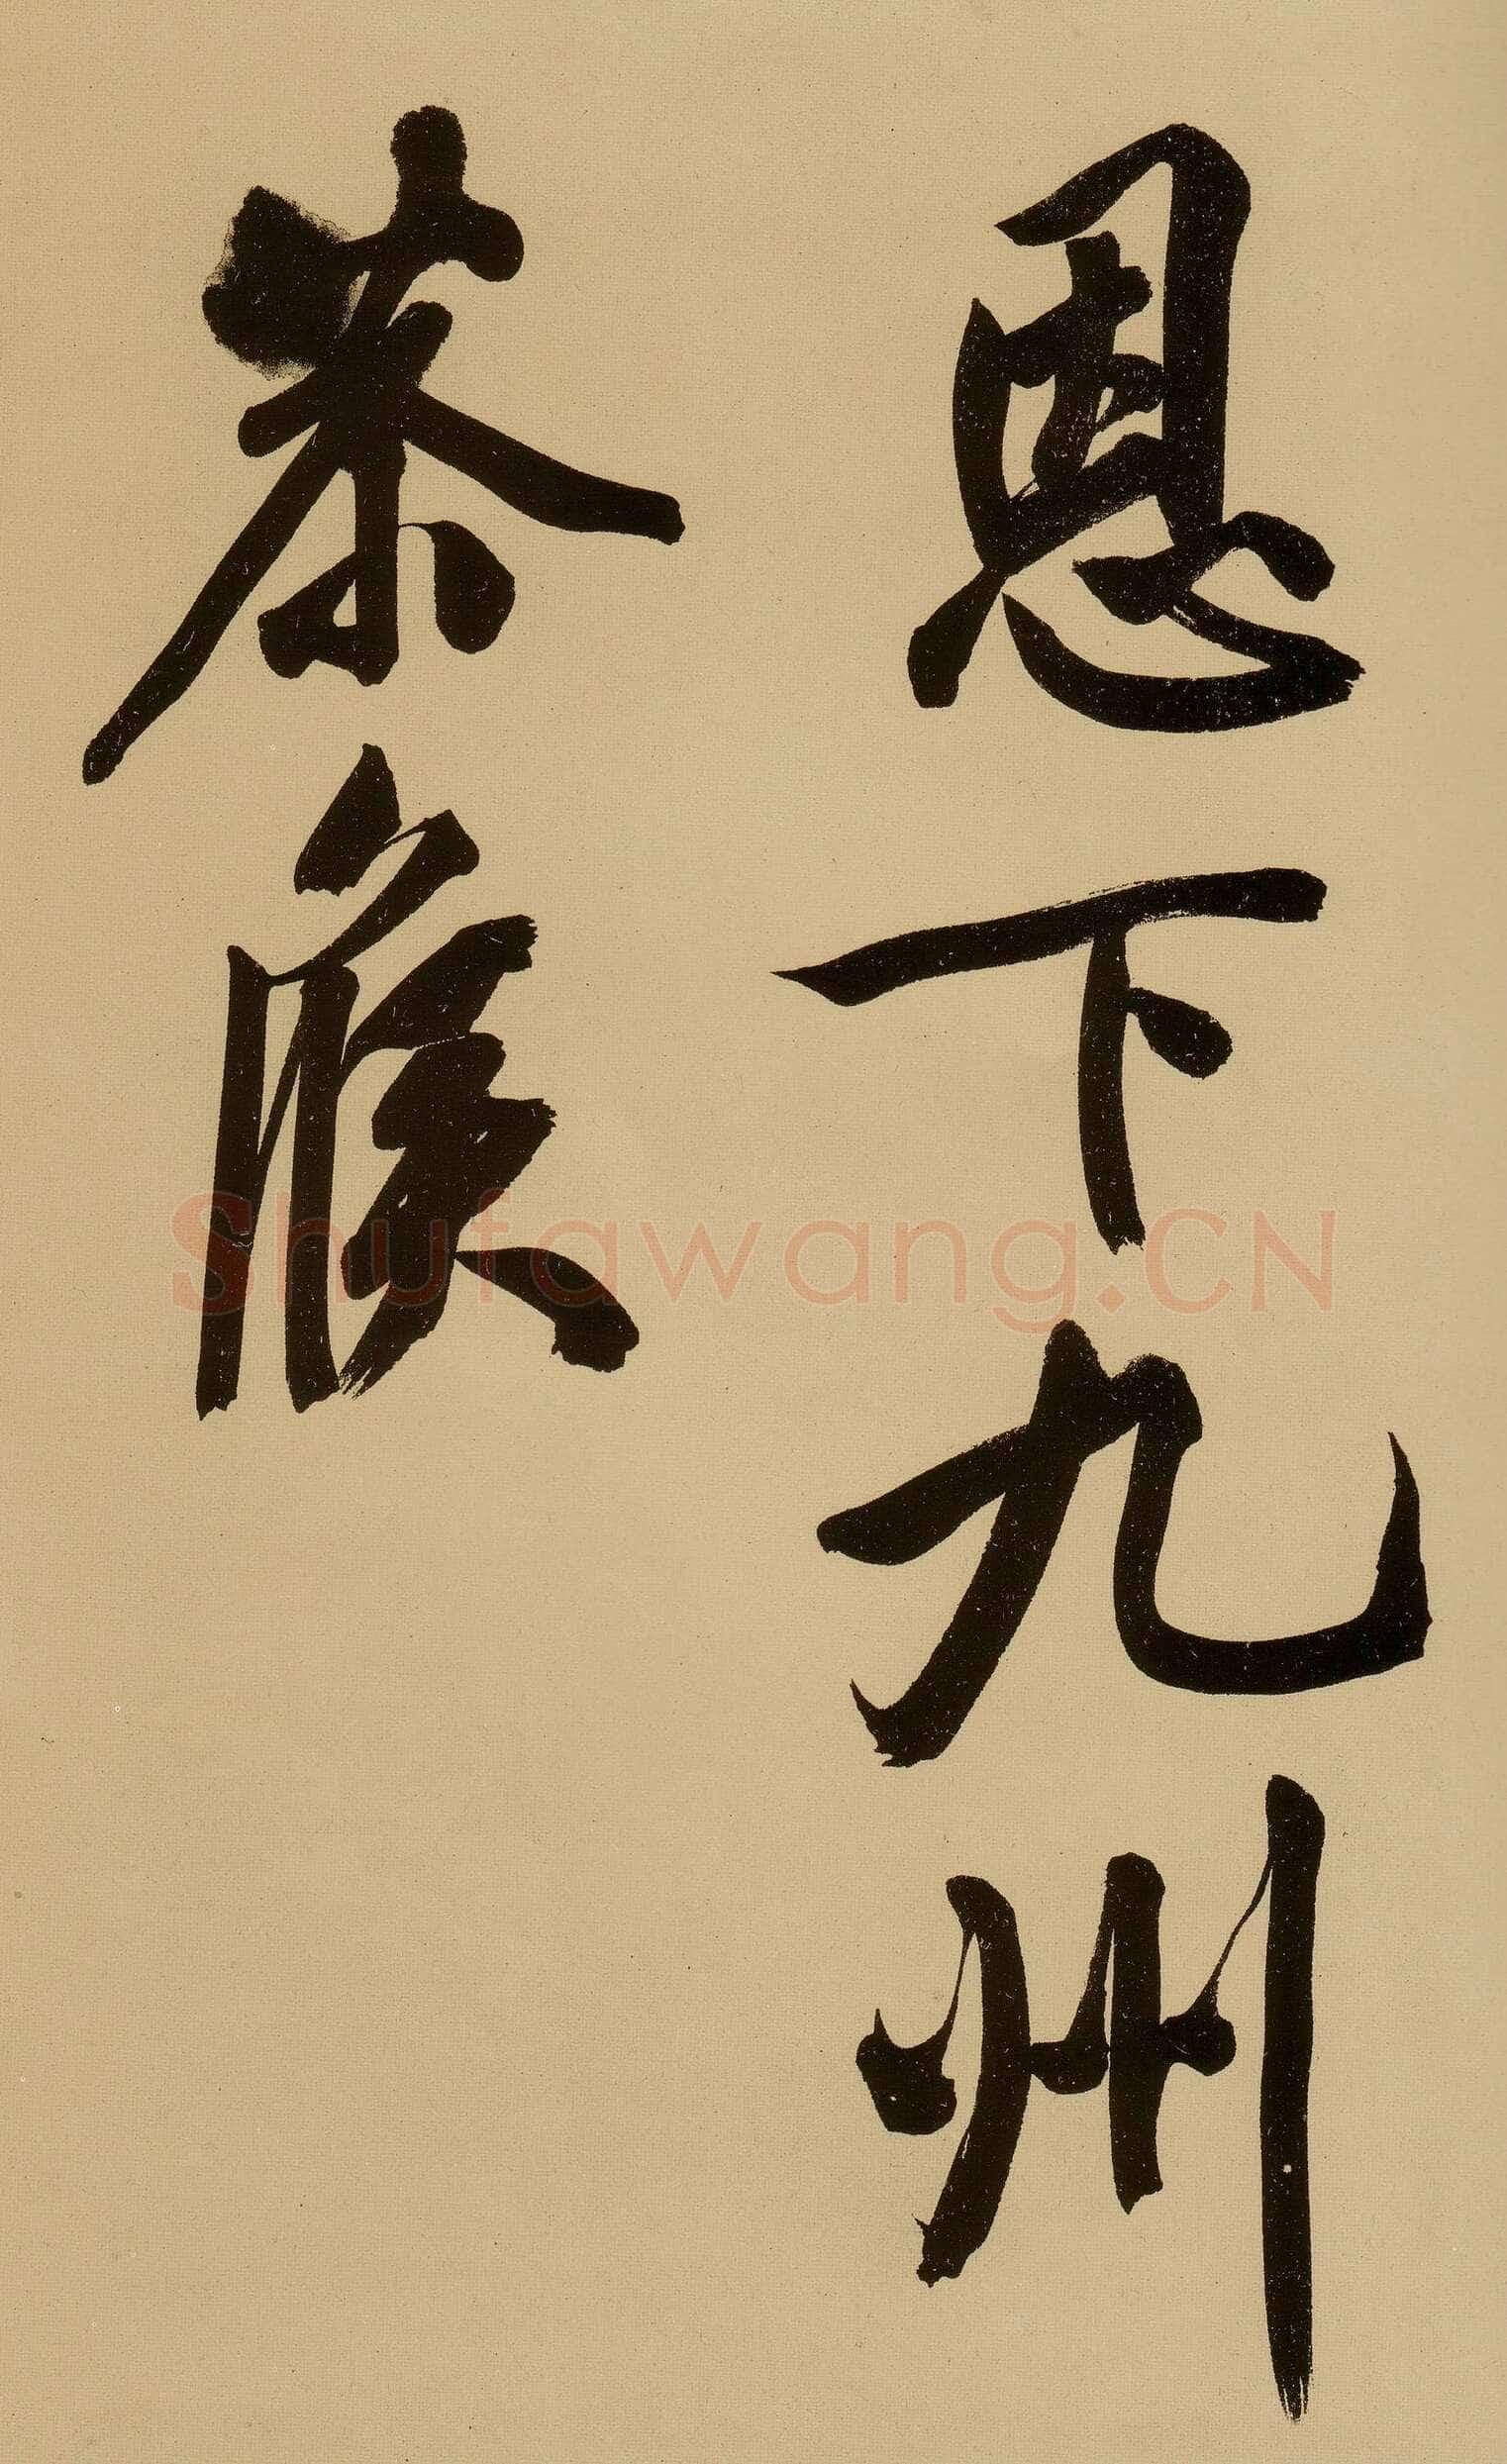 恩下九州
恭候
Shufawang.CN